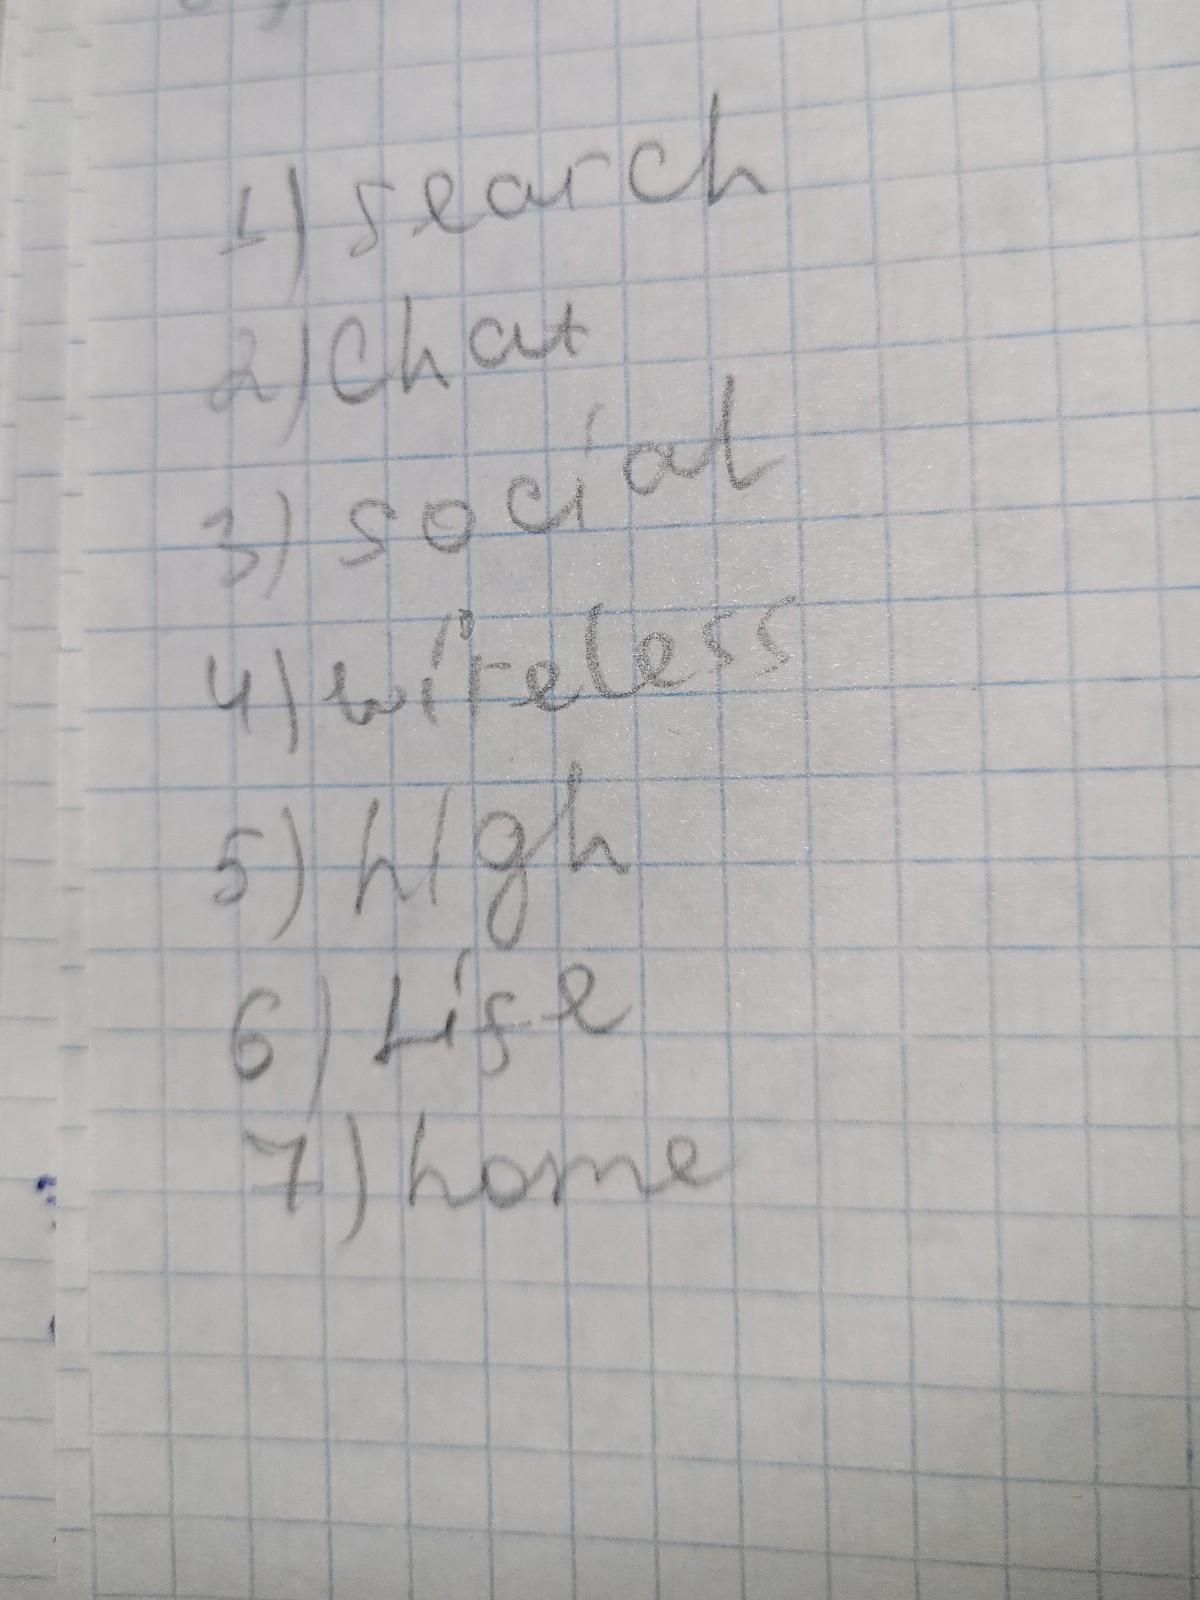 1) search
2) chat
3) social
4) wireless
5) high
6) Life
7) home